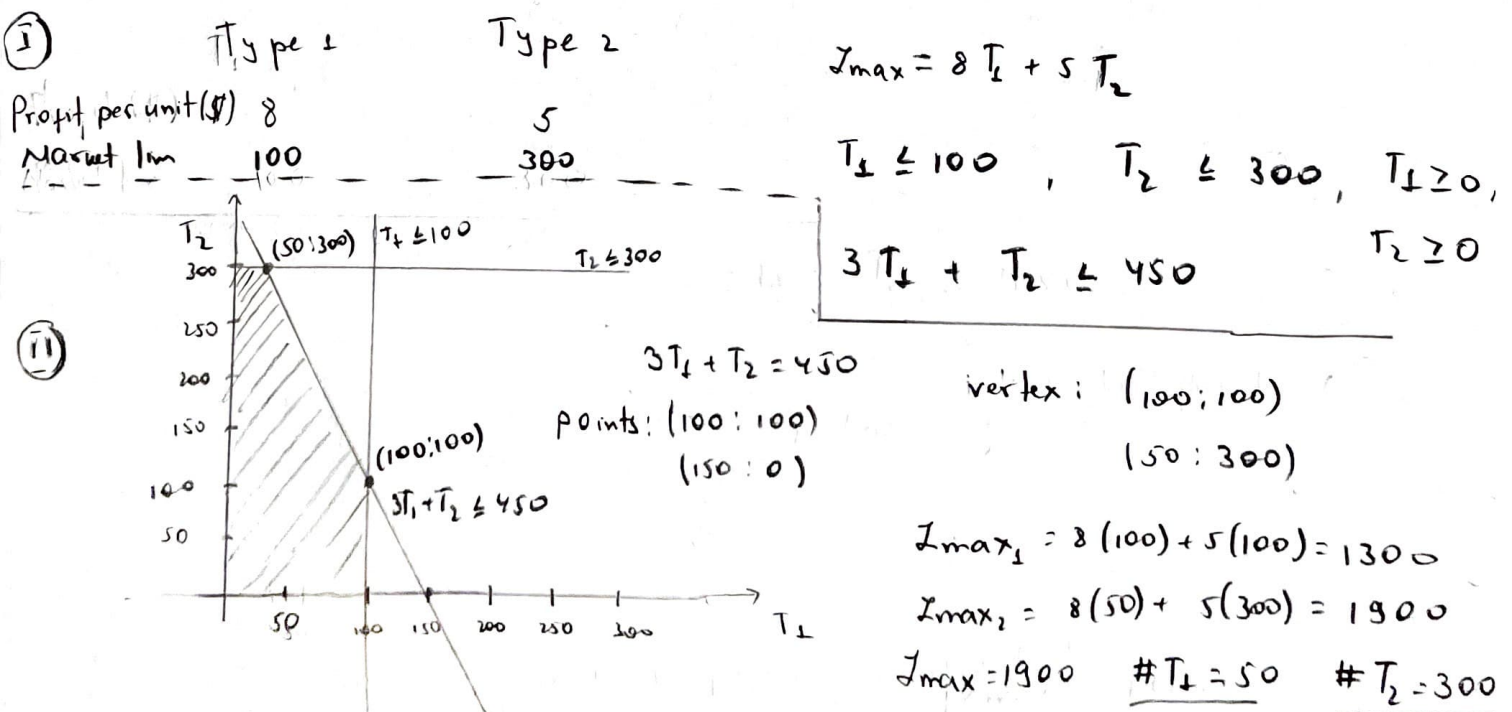 I Type 1 Type 2
Profit per unit($) 8 5
Market lim 100 300
Zmax = 8 T1 + 5 T2
T1 ≤ 100 , T2 ≤ 300, T1 ≥ 0,
T2 ≥ 0
3 T1 + T2 ≤ 450
II
T2
(50:300)
T1 ≤ 100
T2 ≤ 300
300
250
200
150
100
50
(100:100)
3T1 + T2 ≤ 450
50 100 150 200 250 300
T1
3T1 + T2 = 450
points: (100:100)
(150:0)
vertex: (100;100)
(50:300)
Zmax1 = 8(100) + 5(100) = 1300
Zmax2 = 8(50) + 5(300) = 1900
Zmax = 1900 #T1 = 50 #T2 = 300